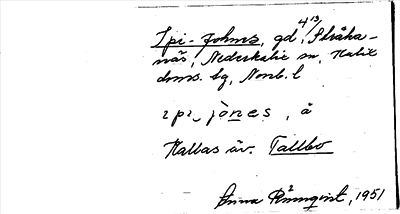 Spi-Johns, gd 4/13, Stråka-
näs, Nederkalix sn, Kalix
doms. bg, Norrb. l
spi, jònes, å
Kallas äv. Tallbo
Anna Rönnqvist, 1951